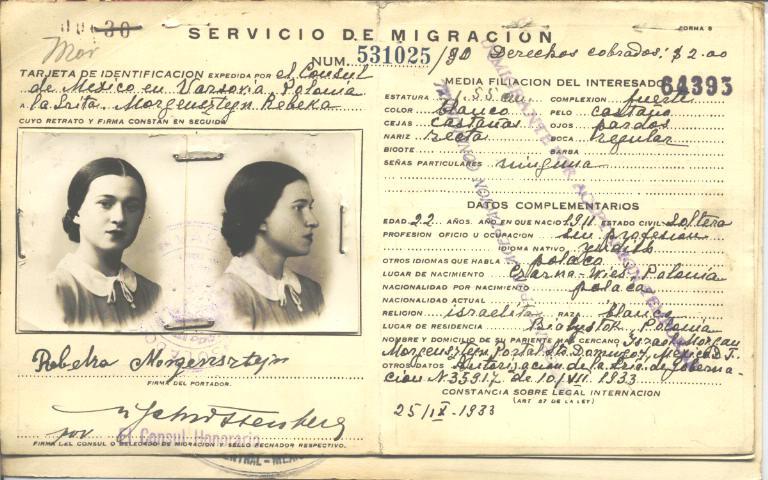 SERVICIO DE MIGRACION
FORMA 8
NUM. 531025/80 Derechos cobrados: $2.00
Mor
TARJETA DE IDENTIFICACION EXPEDIDA POR el Consul
de Mexico en Varsovia, Polonia
A la Srita. Morgensztejn Rebeka
CUYO RETRATO Y FIRMA CONSTAN EN SEGUIDA
Rebeka Morgensztejn
FIRMA DEL PORTADOR.
por
El Consul Honorario
FIRMA DEL CONSUL O DELEGADO DE MIGRACION Y SELLO FECHADOR RESPECTIVO.
MEDIA FILIACION DEL INTERESADO
64393
ESTATURA 1.55 cm. COMPLEXION fuerte
COLOR blanco PELO castaño
CEJAS castañas OJOS pardos
NARIZ recta BOCA regular
BIGOTE BARBA
SEÑAS PARTICULARES ninguna
DATOS COMPLEMENTARIOS
EDAD 22 AÑOS. AÑO EN QUE NACIO 1911 ESTADO CIVIL Soltera
PROFESION OFICIO U OCUPACION sin profesion
IDIOMA NATIVO yidish
OTROS IDIOMAS QUE HABLA polaco
LUGAR DE NACIMIENTO Czarna-Wies, Polonia
NACIONALIDAD POR NACIMIENTO polaca
NACIONALIDAD ACTUAL
RELIGION israelita RAZA blanca
LUGAR DE RESIDENCIA Bialystok, Polonia
NOMBRE Y DOMICILIO DE SU PARIENTE MAS CERCANO
Morgensztejn, Portal Sto Domingo 7, Mexico D.F.
OTROS DATOS Autorizacion de la Sria. de Goberna-
cion N 35917 de 10/VII. 1933
CONSTANCIA SOBRE LEGAL INTERNACION
(ART 27 DE LA LEY)
25/IX-1933